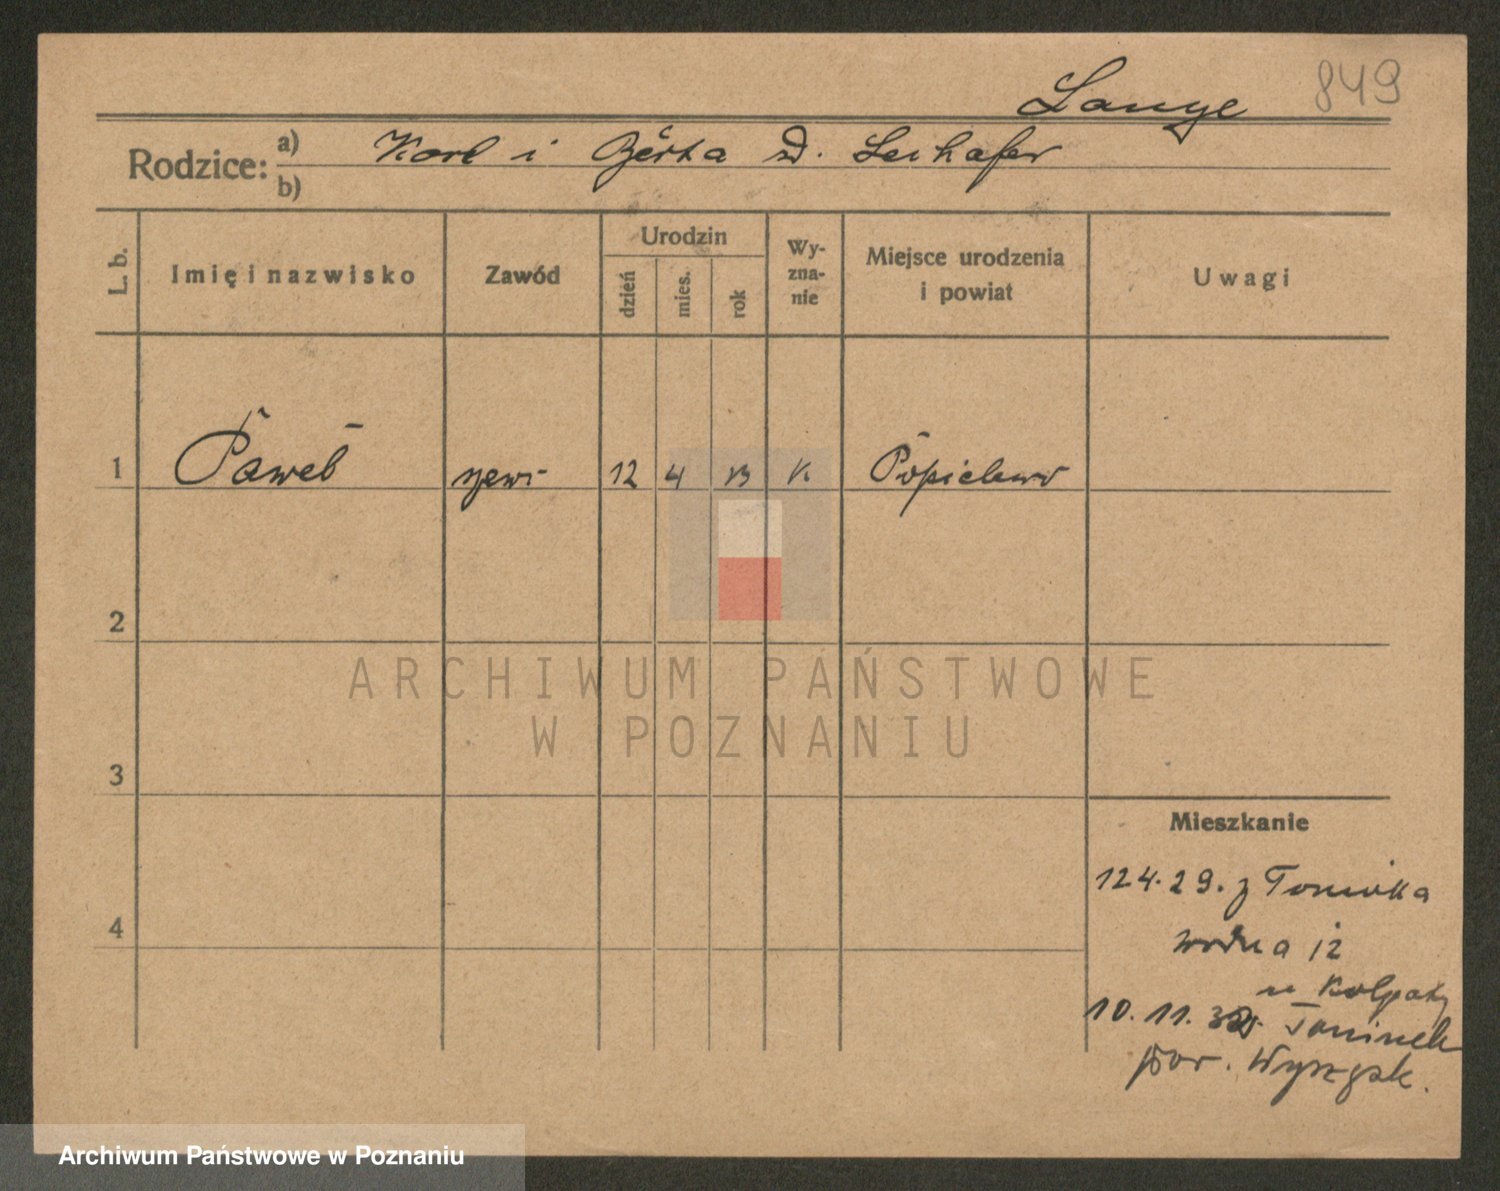 Lange 849
Rodzice: a) Karl i Berta zd. Leihafer
b)
L. b. Imię i nazwisko Zawód Urodzin dzień mies. rok Wy-zna-nie Miejsce urodzenia i powiat Uwagi
1 Paweł szewc 12 4 13 K Popielewo
2
ARCHIWUM PAŃSTWOWE
W POZNANIU
3
Mieszkanie
12 4. 29. z
4
wodna 12
u
10. 11. Toninek
pow. Wyrzysk.
Archiwum Państwowe w Poznaniu